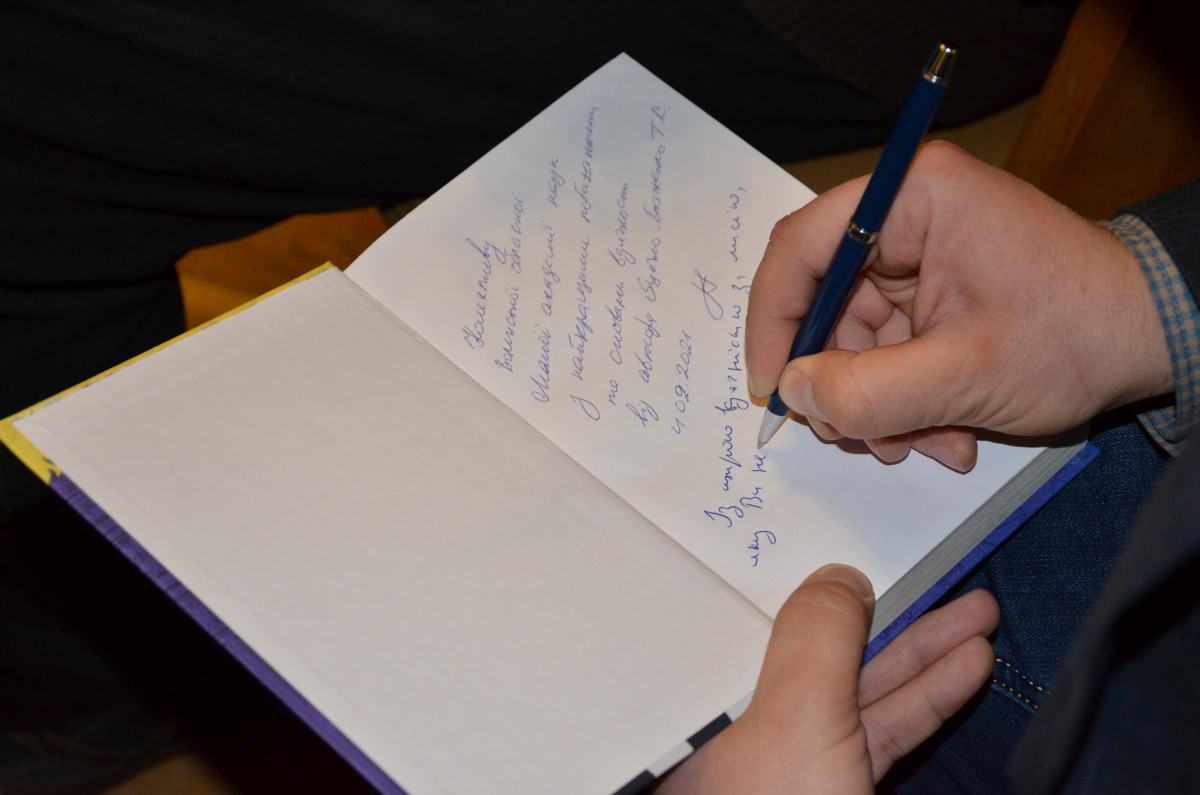 Колективу
Волинської обласної
Малої академії наук
З найкращими побажаннями
та словами вдячності
від автора Яцечко-Блаженко Т.В.
4.09.2021
Із щирою вдячністю за місію,
яку Ви не